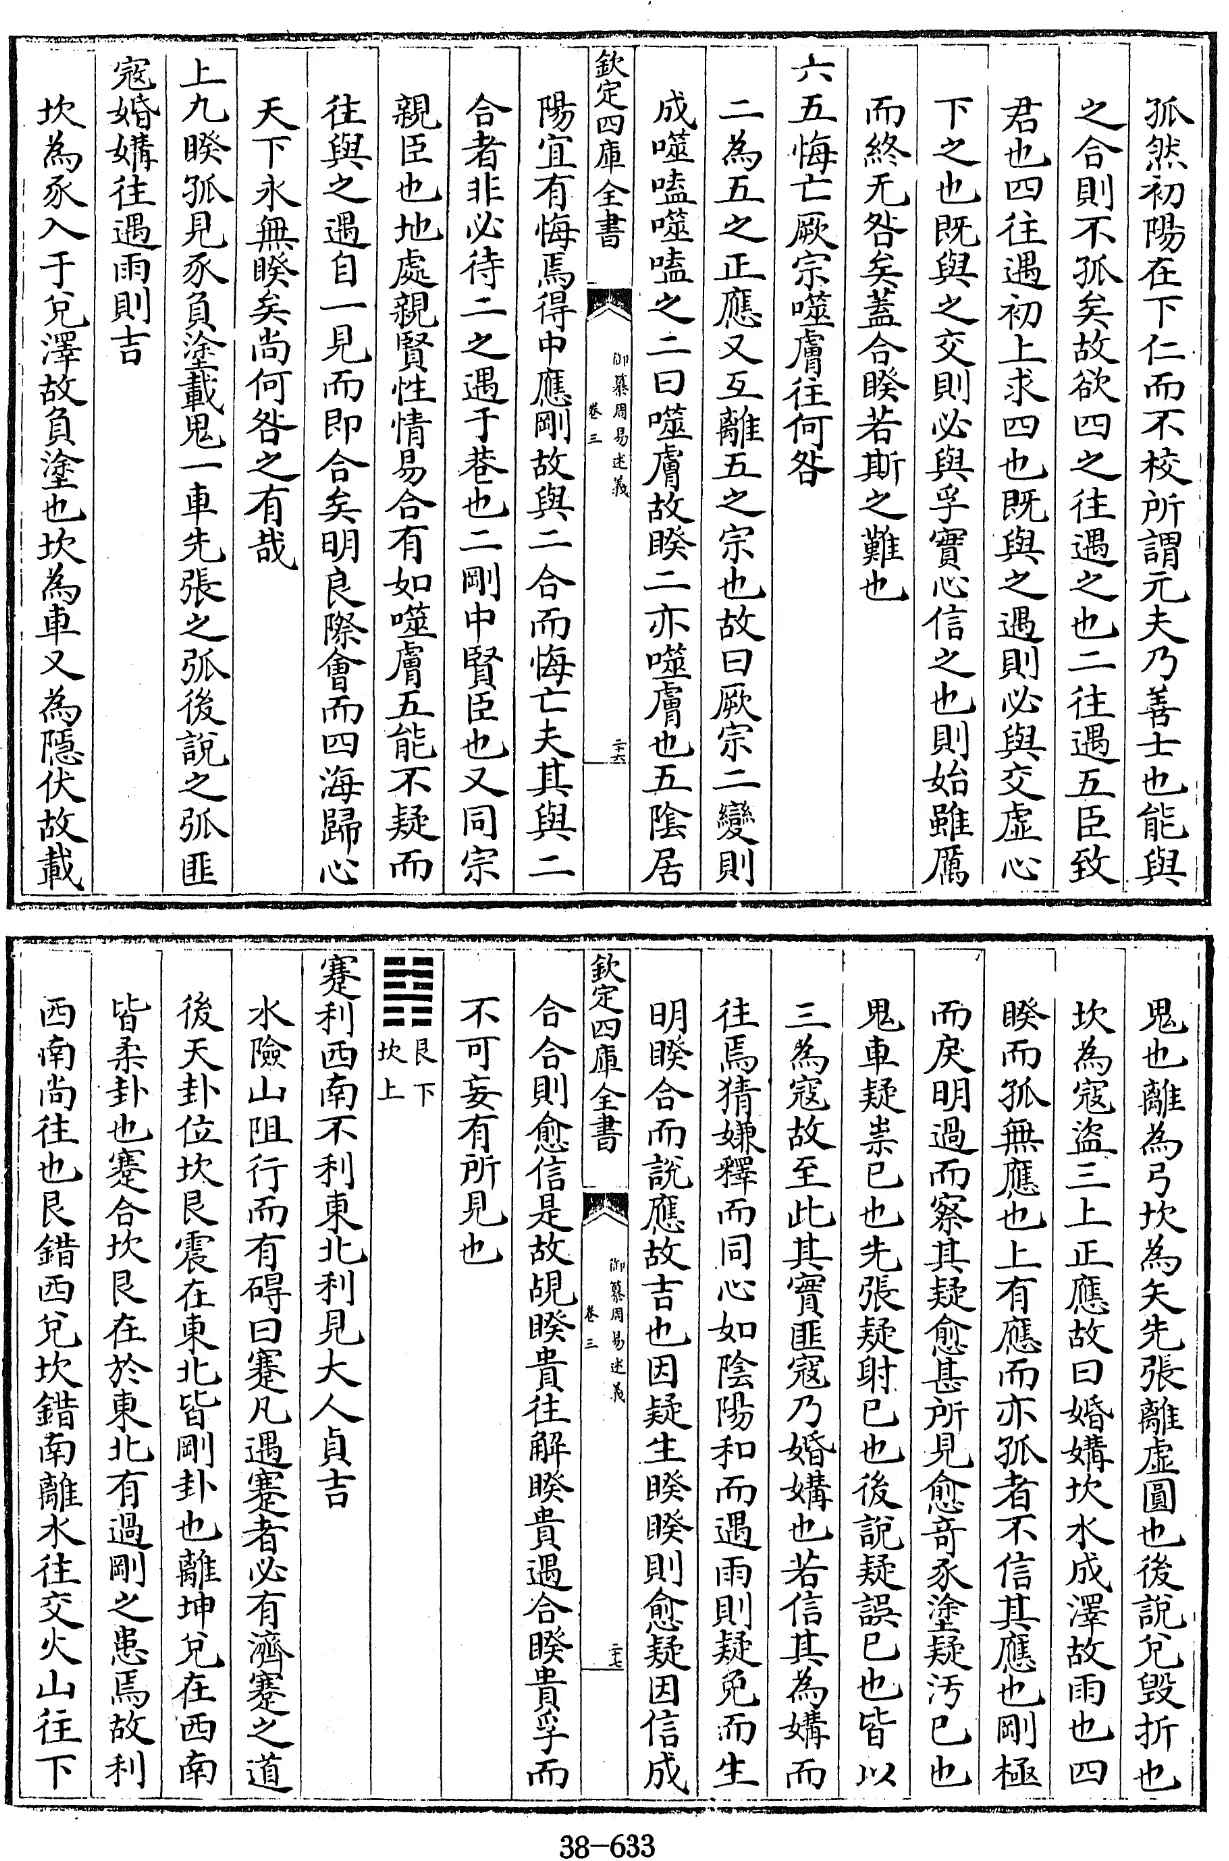 孤然初陽在下仁而不校所謂元夫乃善士也能與
之合則不孤矣故欲四之往遇之也二往遇五臣致
君也四往遇初上求四也既與之遇則必與交虛心
下之也既與之交則必與孚實心信之也則始雖厲
而終无咎矣蓋合睽若斯之難也
六五悔亡厥宗噬膚往何咎
二為五之正應又互離五之宗也故曰厥宗二變則
成噬嗑噬嗑之二曰噬膚故睽二亦噬膚也五陰居
欽定四庫全書
御纂周易述義
卷三
二十六
陽宜有悔焉得中應剛故與二合而悔亡夫其與二
合者非必待二之遇于巷也二剛中賢臣也又同宗
親臣也地處親賢性情易合有如噬膚五能不疑而
往與之遇自一見而即合矣明良際會而四海歸心
天下永無睽矣尚何咎之有哉
上九睽孤見豕負塗載鬼一車先張之弧後說之弧匪
寇婚媾往遇雨則吉
坎為豕入于兌澤故負塗也坎為車又為隱伏故載
鬼也離為弓坎為矢先張離虛圓也後說兌毀折也
坎為寇盜三上正應故曰婚媾坎水成澤故雨也四
睽而孤無應也上有應而亦孤者不信其應也剛極
而戾明過而察其疑愈甚所見愈奇豕塗疑汚己也
鬼車疑祟己也先張疑射己也後說疑誤己也皆以
三為寇故至此其實匪寇乃婚媾也若信其為媾而
往焉猜嫌釋而同心如陰陽和而遇雨則疑免而生
明睽合而說應故吉也因疑生睽睽則愈疑因信成
欽定四庫全書
御纂周易述義
卷三
二十七
合合則愈信是故覘睽貴往解睽貴遇合睽貴孚而
不可妄有所見也
䷦艮下
坎上
蹇利西南不利東北利見大人貞吉
水險山阻行而有碍曰蹇凡遇蹇者必有濟蹇之道
後天卦位坎艮震在東北皆剛卦也離坤兌在西南
皆柔卦也蹇合坎艮在於東北有過剛之患焉故利
西南尚往也艮錯西兌坎錯南離水往交火山往下
38-633